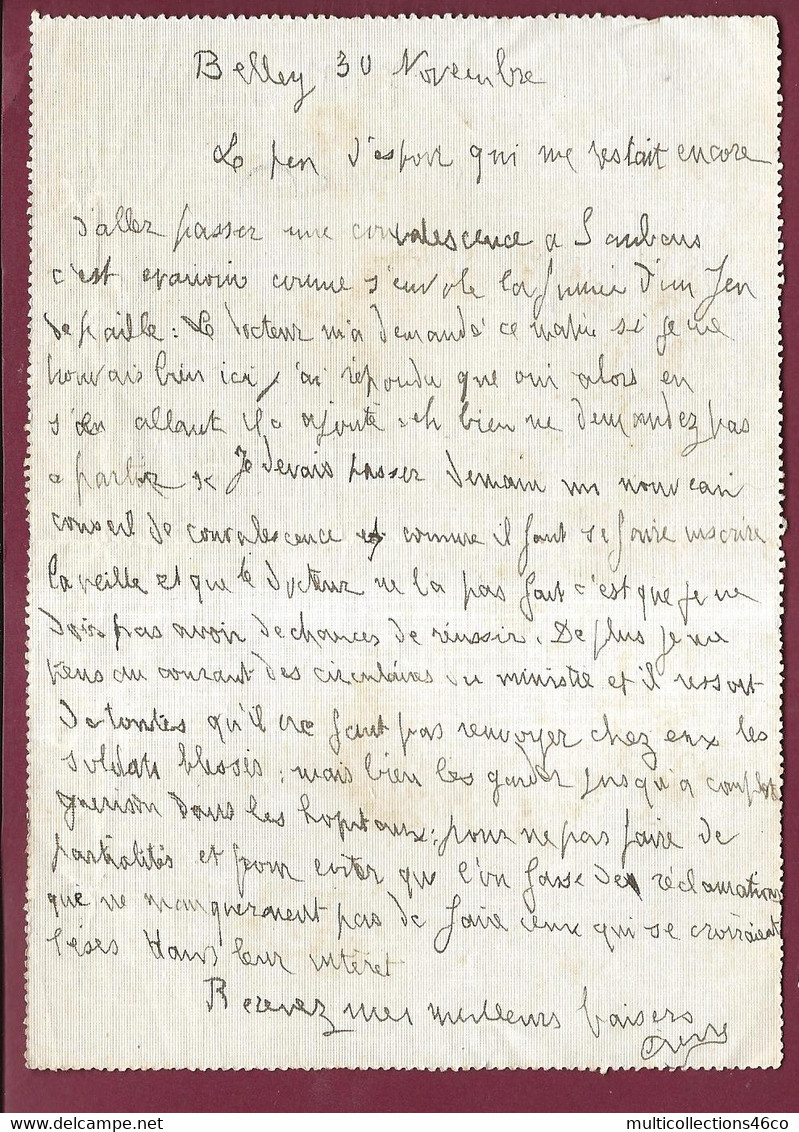 Belley 30 Novembre
Le peu d'espoir qui me restait encore
d'aller passer une convalescence a
c'est evanoui comme s'envole la fumée d'un feu
de paille : Le docteur m'a demandé ce matin si je me
trouvais bien ici, j'ai répondu que oui alors en
s'en allant il a ajouté eh bien ne demandez pas
a partir Je devais passer demain un nouveau
conseil de convalescence et comme il faut se faire inscrire
la veille et que le docteur ne la pas fait c'est que je ne
dois pas avoir de chances de réussir. De plus je me
tiens au courant des circulaires du ministre et il ressort
de toutes qu'il ne faut pas renvoyer chez eux les
soldats blessés ; mais bien les garder jusqu'a complete
guerison dans les hopitaux ; pour ne pas faire de
partialités et pour eviter que l'on fasse des reclamations
que ne manqueraient pas de faire ceux qui se croiraient
lésés dans leur intéret
Recevez mes meilleurs baisers
Pierre
multicollections46co